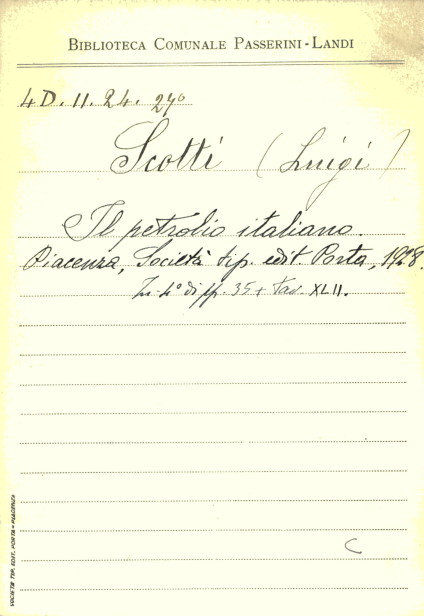 BIBLIOTECA COMUNALE PASSERINI-LANDI
4 D. 11. 24. 27º
Scotti (Luigi)
Il petrolio italiano.
Piacenza, Società tip. edit. Porta, 1928.
In 4º di pp. 35 + tav. XLII.
C
SOCIETÀ TIP. EDIT. PORTA - PIACENZA